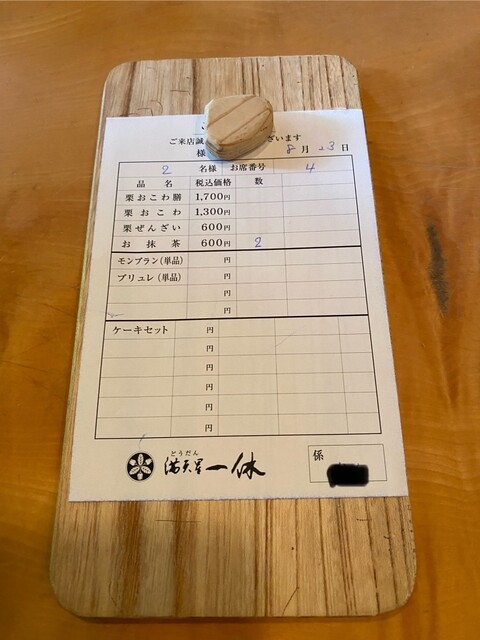 ご来店誠 ざいます
様 8月23日
2 名様 お席番号 4
品名 税込価格 数
栗おこわ膳 1,700円
栗おこわ 1,300円
栗ぜんざい 600円
お抹茶 600円 2
モンブラン(単品) 円
ブリュレ(単品) 円
円
円
ケーキセット 円
円
円
円
円
円
どうだん
満天星一休
係